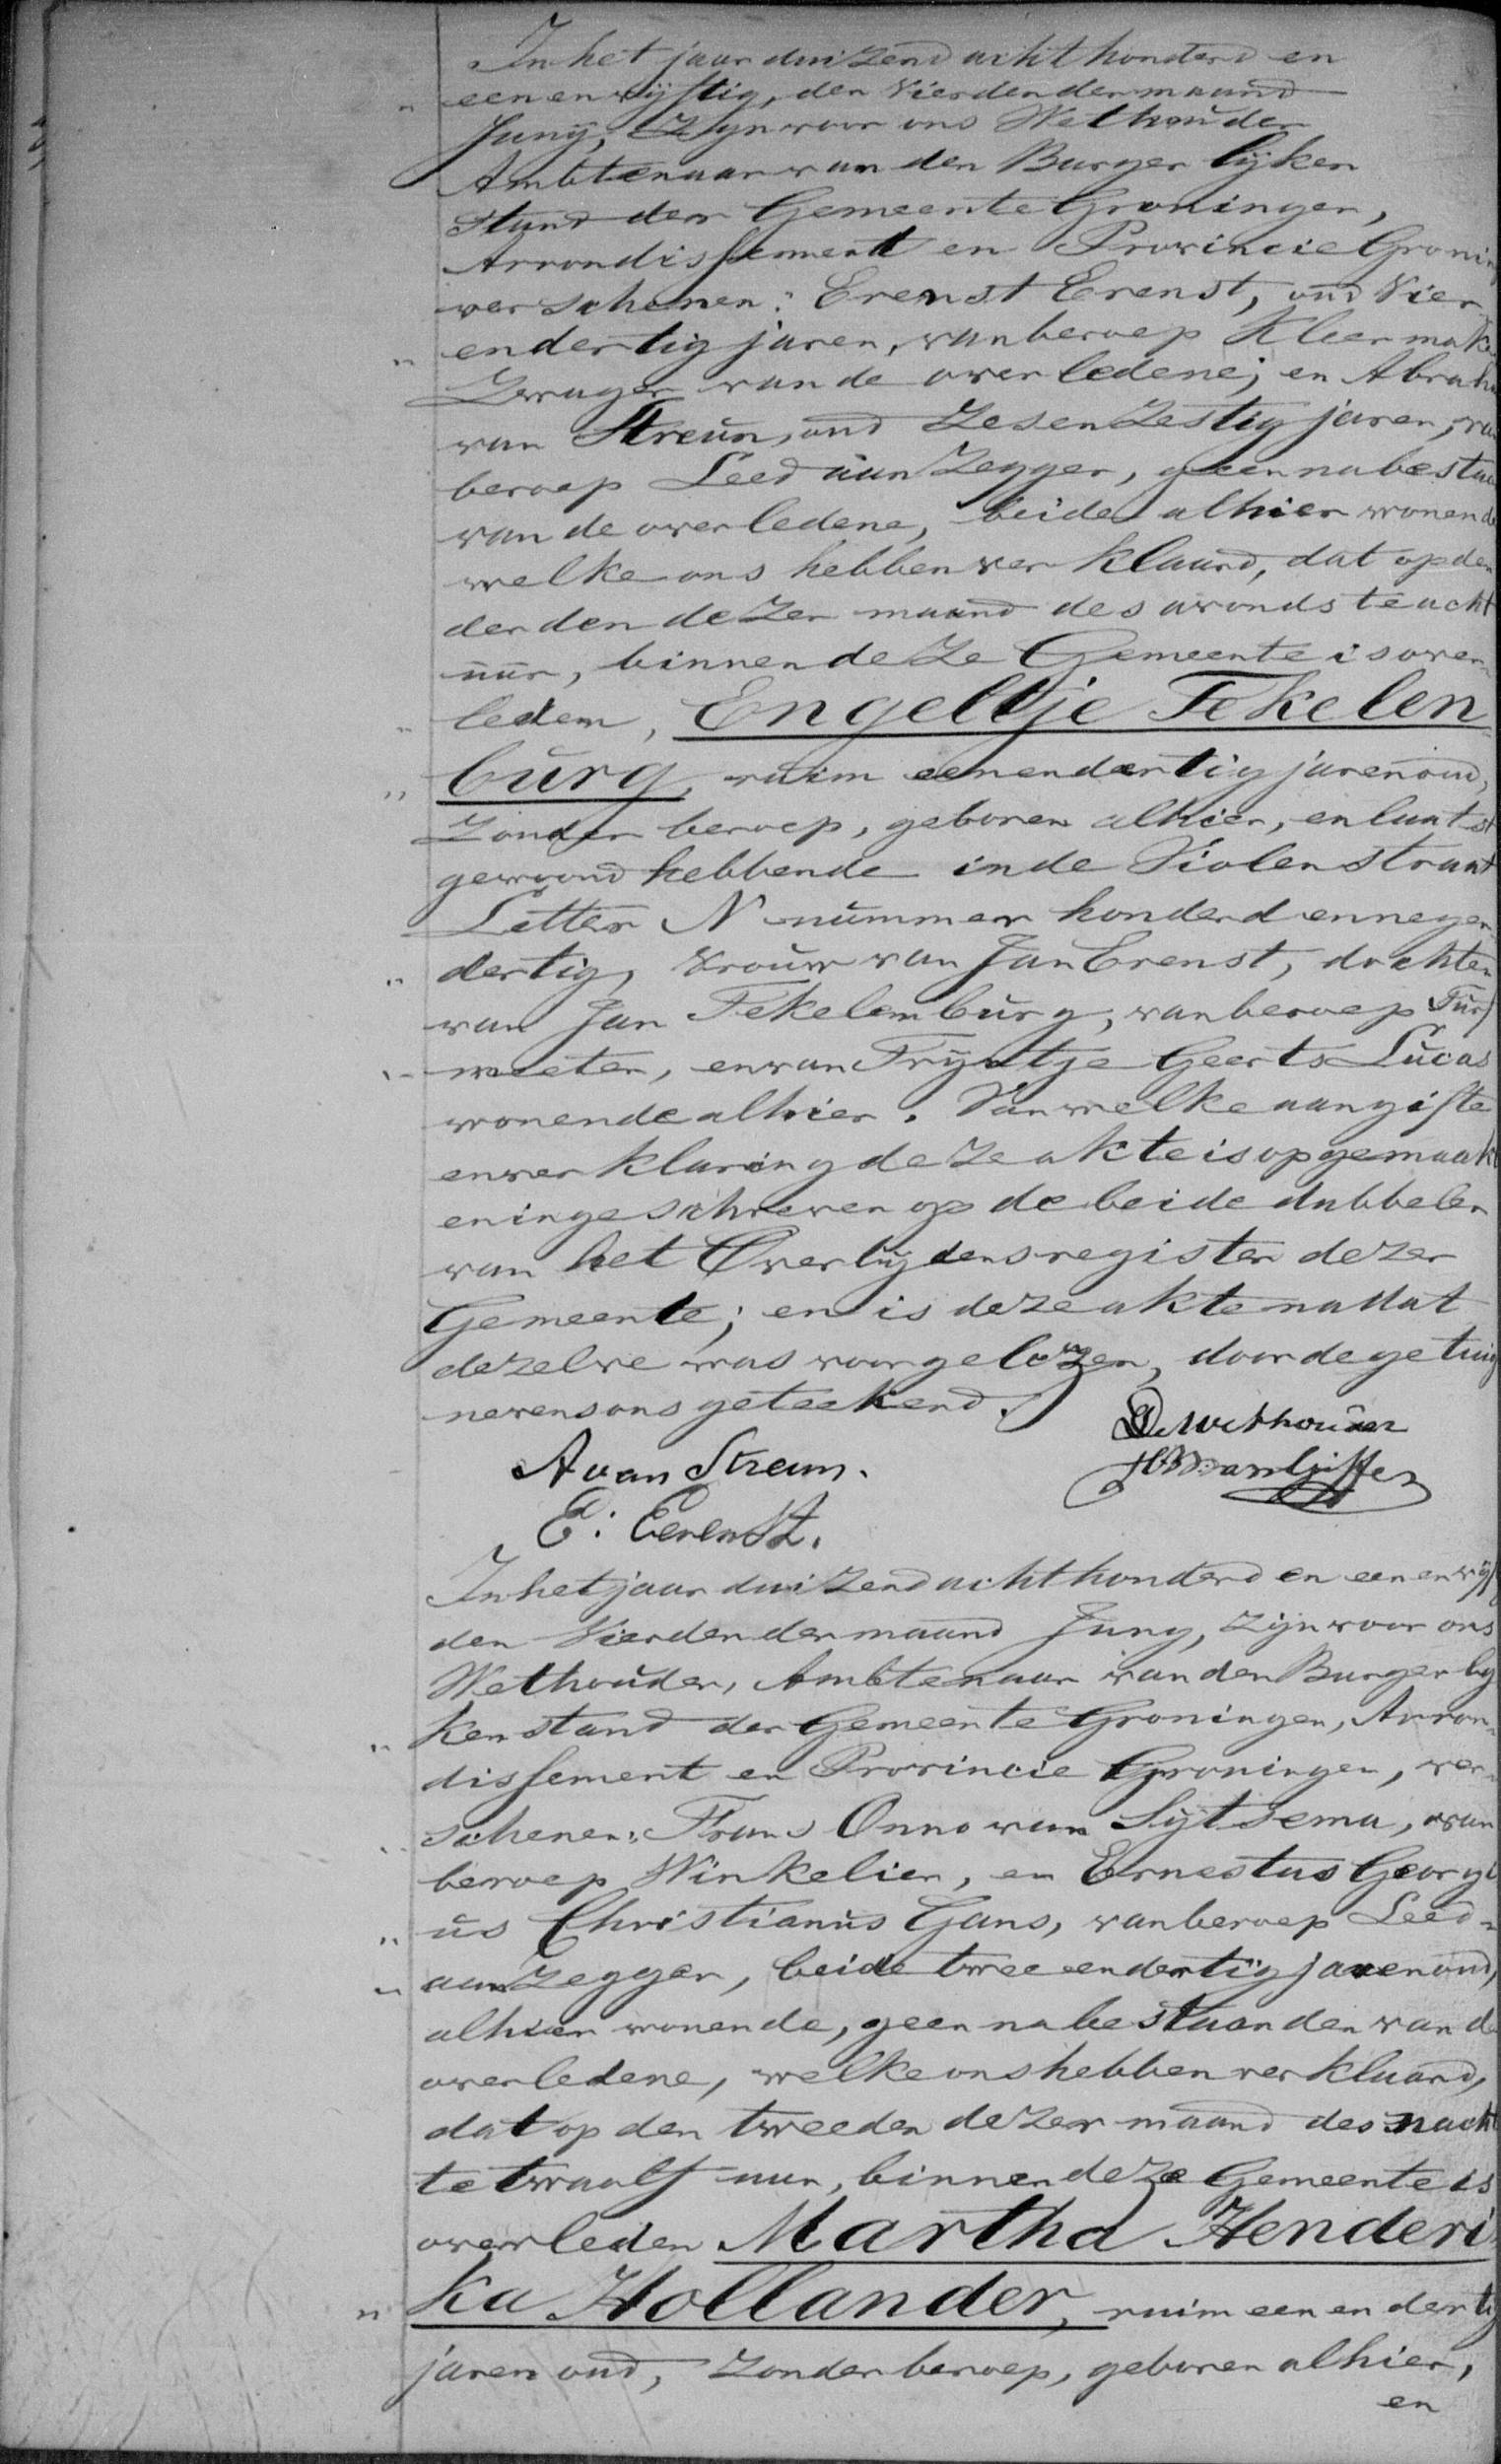 In het jaar duizend acht honderd en
een en vijftig, den Vierden der maand
Junij, Zijn voor ons Wethouder
Ambtenaar van den Burger lijken
Stand der Gemeente Groningen,
Arrondissement en Provincie Gronin
verschenen: Erenst Erenst, oud Vier
en dertig jaren, van beroep Kleermake
Zwager van de overledene; en Abraha
van Streun, oud Zes en Zestig jaren, va
beroep Leed aan Zegger, geen nabestaa
van de overledene, beide alhier wonende
welke ons hebben ver klaard, dat op den
derden dezer maand des avonds te acht
uur, binnen deze Gemeente is over=
leden, Engeltje Tekelen=
burg, ruim een en dertig jaren oud,
Zonder beroep, geboren alhier, en laatst
gewoond hebbende in de Violenstraat
Letter N nummer honderd en negen
dertig, Vrouw van Jan Erenst, dochter
van Jan Tekelenburg, van beroep Turf
meeter, en van Trijntje Geerts Lucas
wonende alhier. Van welke aangifte
en verklaring deze akte is opgemaakt
en ingeschreven op de beide dubbelen
van het Overlijdens register dezer
Gemeente; en is deze akte na dat
dezelve was voorgelezen, door de getuig
nevens ons geteekend.
De Wethouder
A van Streun.
E: Eerenst.
In het jaar duizend acht honderd en een en vijf
den Vierden der maand Juny, zijn voor ons
Wethouder, Ambtenaar van den Burger ly
ken stand der Gemeente Groningen, Arron=
dissement en Provincie Groningen, ver=
schenen: Frans Onno van Sijtsema, van
beroep Winkelier, en Ernestus Georgi
us Christianus Gans, van beroep Leed=
aanzegger, beide twee en dertig jaren oud,
alhier wonende, geen nabestaanden van de
overledene, welke ons hebben verklaard,
dat op den tweeden dezer maand des nacht
te twaalf uur, binnen deze Gemeente is
overleden Martha Henderi
ka Hollander, ruim een en dertig
jaren oud, Zonder beroep, geboren alhier,
en